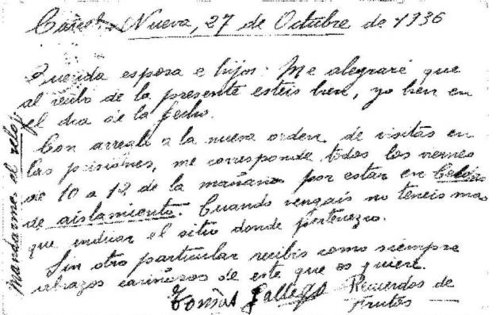 Cárcel Nueva, 27 de Octubre de 1936
Querida esposa e hijos: Me alegraré que
al recibo de la presente esteis bien, yo bien en
el dia de la fecha.
Con arreglo a la nueva orden de visitas en
las prisiones, me corresponde todos los viernes
de 10 a 12 de la mañana por estar en Celdas
de aislamiento. Cuando vengais no teneis mas
que indicar el sitio donde pertenezco.
Sin otro particular recibis como siempre
abrazos cariñosos de este que os quiere.
Tomás Gallego Recuerdos de
frutos
Mandarme el reloj